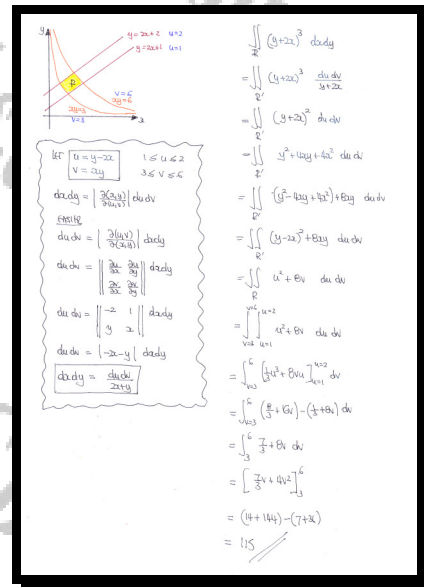 y
y = 2x+2 u=2
y = 2x+1 u=1
R
v=6
xy=6
xy=3
v=3
x
let u = y-2x 1 ≤ u ≤ 2
v = xy 3 ≤ v ≤ 6
dxdy = |∂(x,y)/∂(u,v)| du dv
EASIER
du dv = |∂(u,v)/∂(x,y)| dxdy
du dv = || ∂u/∂x ∂u/∂y || dxdy
∂v/∂x ∂v/∂y
du dv = || -2 1 || dxdy
y x
du dv = |-2x-y| dxdy
dxdy = du dv/2x+y
∬R (y+2x)³ dxdy
= ∬R' (y+2x)³ du dv/y+2x
= ∬R' (y+2x)² du dv
= ∬R' y²+4xy+4x² du dv
= ∬R' (y²-4xy+4x²)+8xy du dv
= ∬R' (y-2x)²+8xy du dv
= ∬R u²+8v du dv
= ∫v=3 v=6 ∫u=1 u=2 u²+8v du dv
= ∫v=3 6 [⅓u³+8vu]u=1 u=2 dv
= ∫v=3 6 (8/3+16v)-(⅓+8v) dv
= ∫3 6 7/3+8v dv
= [7/3v+4v²]3 6
= (14+144)-(7+36)
= 115